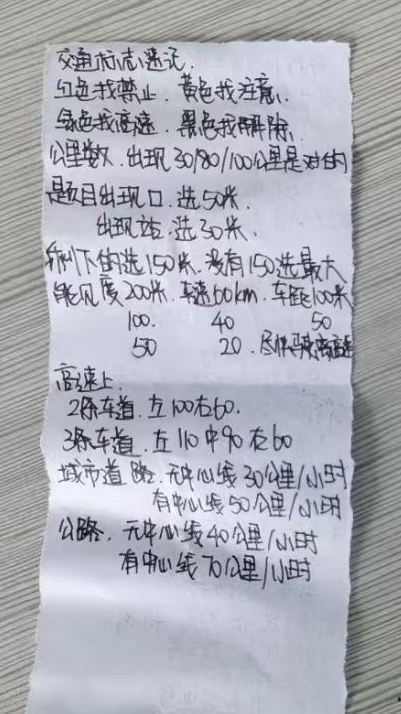 交通标志速记.
红色找禁止. 黄色找注意.
绿色找高速. 黑色找解除.
公里数. 出现30/80/100公里是对的
题目出现口. 选50米.
出现站. 选30米.
剩下的选150米. 没有150选最大
能见度200米. 车速60km. 车距100米
100. 40 50
50 20. 尽快驶离高速
高速上.
2条车道. 左100右60.
3条车道. 左110中90右60
城市道路. 无中心线30公里/小时
有中心线50公里/小时
公路. 无中心线40公里/小时
有中心线70公里/小时